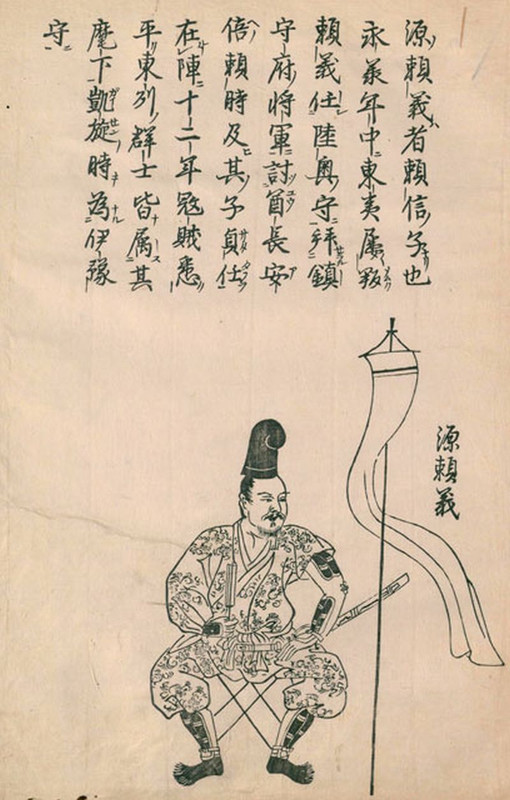 源頼義者頼信ノ子也
永義年中東夷屡叛
頼義任陸奥守拝鎮
守府将軍討酋長安
倍頼時及其子貞任
在陣十二年寇賊悉
平東列群士皆属其
麾下凱旋時為伊豫
守
源頼義